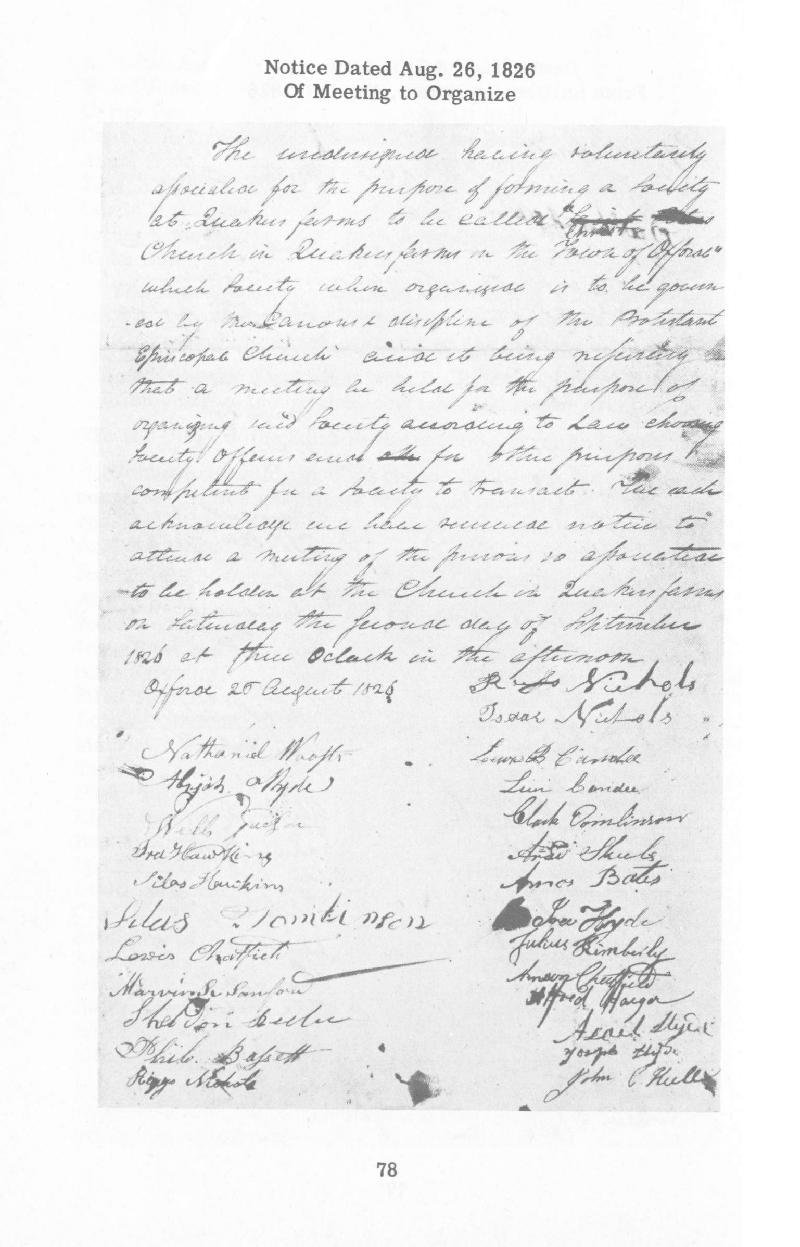 Notice Dated Aug. 26, 1826
Of Meeting to Organize
The undersigned having voluntarily
associated for the purpose of forming a Society
at Quakers farms to be called "Christ
Church in Quakersfarms in the Town of Oxford"
which Society when organised is to be govern
-ed by the Canons & discipline of the Protestant
Episcopal Church and it being necessary
that a meeting be held for the purpose of
organizing said Society according to Law choosing
Society Officers and for other purposes
competent for a Society to transact. We each
acknowledge we have received notice to
attend a meeting of the persons so associated
to be holden at the Church in Quakersfarms
on Saturday the Second day of September
1826 at three Oclock in the afternoon
Oxford 26 August 1826
Nichols
Isaac Nichols
Nathaniel Wooster
Abijah Hyde
Ira Hawkins
Silas Hawkins
Silas Tomlinson
Lewis Chatfield
Marvin Sanford
Sheldon
Philo Bassett
Riggs Nichols
Lewis B Candee
Levi Candee
Clark Tomlinson
Amos Bates
Ira Hyde
Julius Kimberly
Anson Chatfield
Alfred Harger
Hyde
Joseph Hyde
John C Hull
78